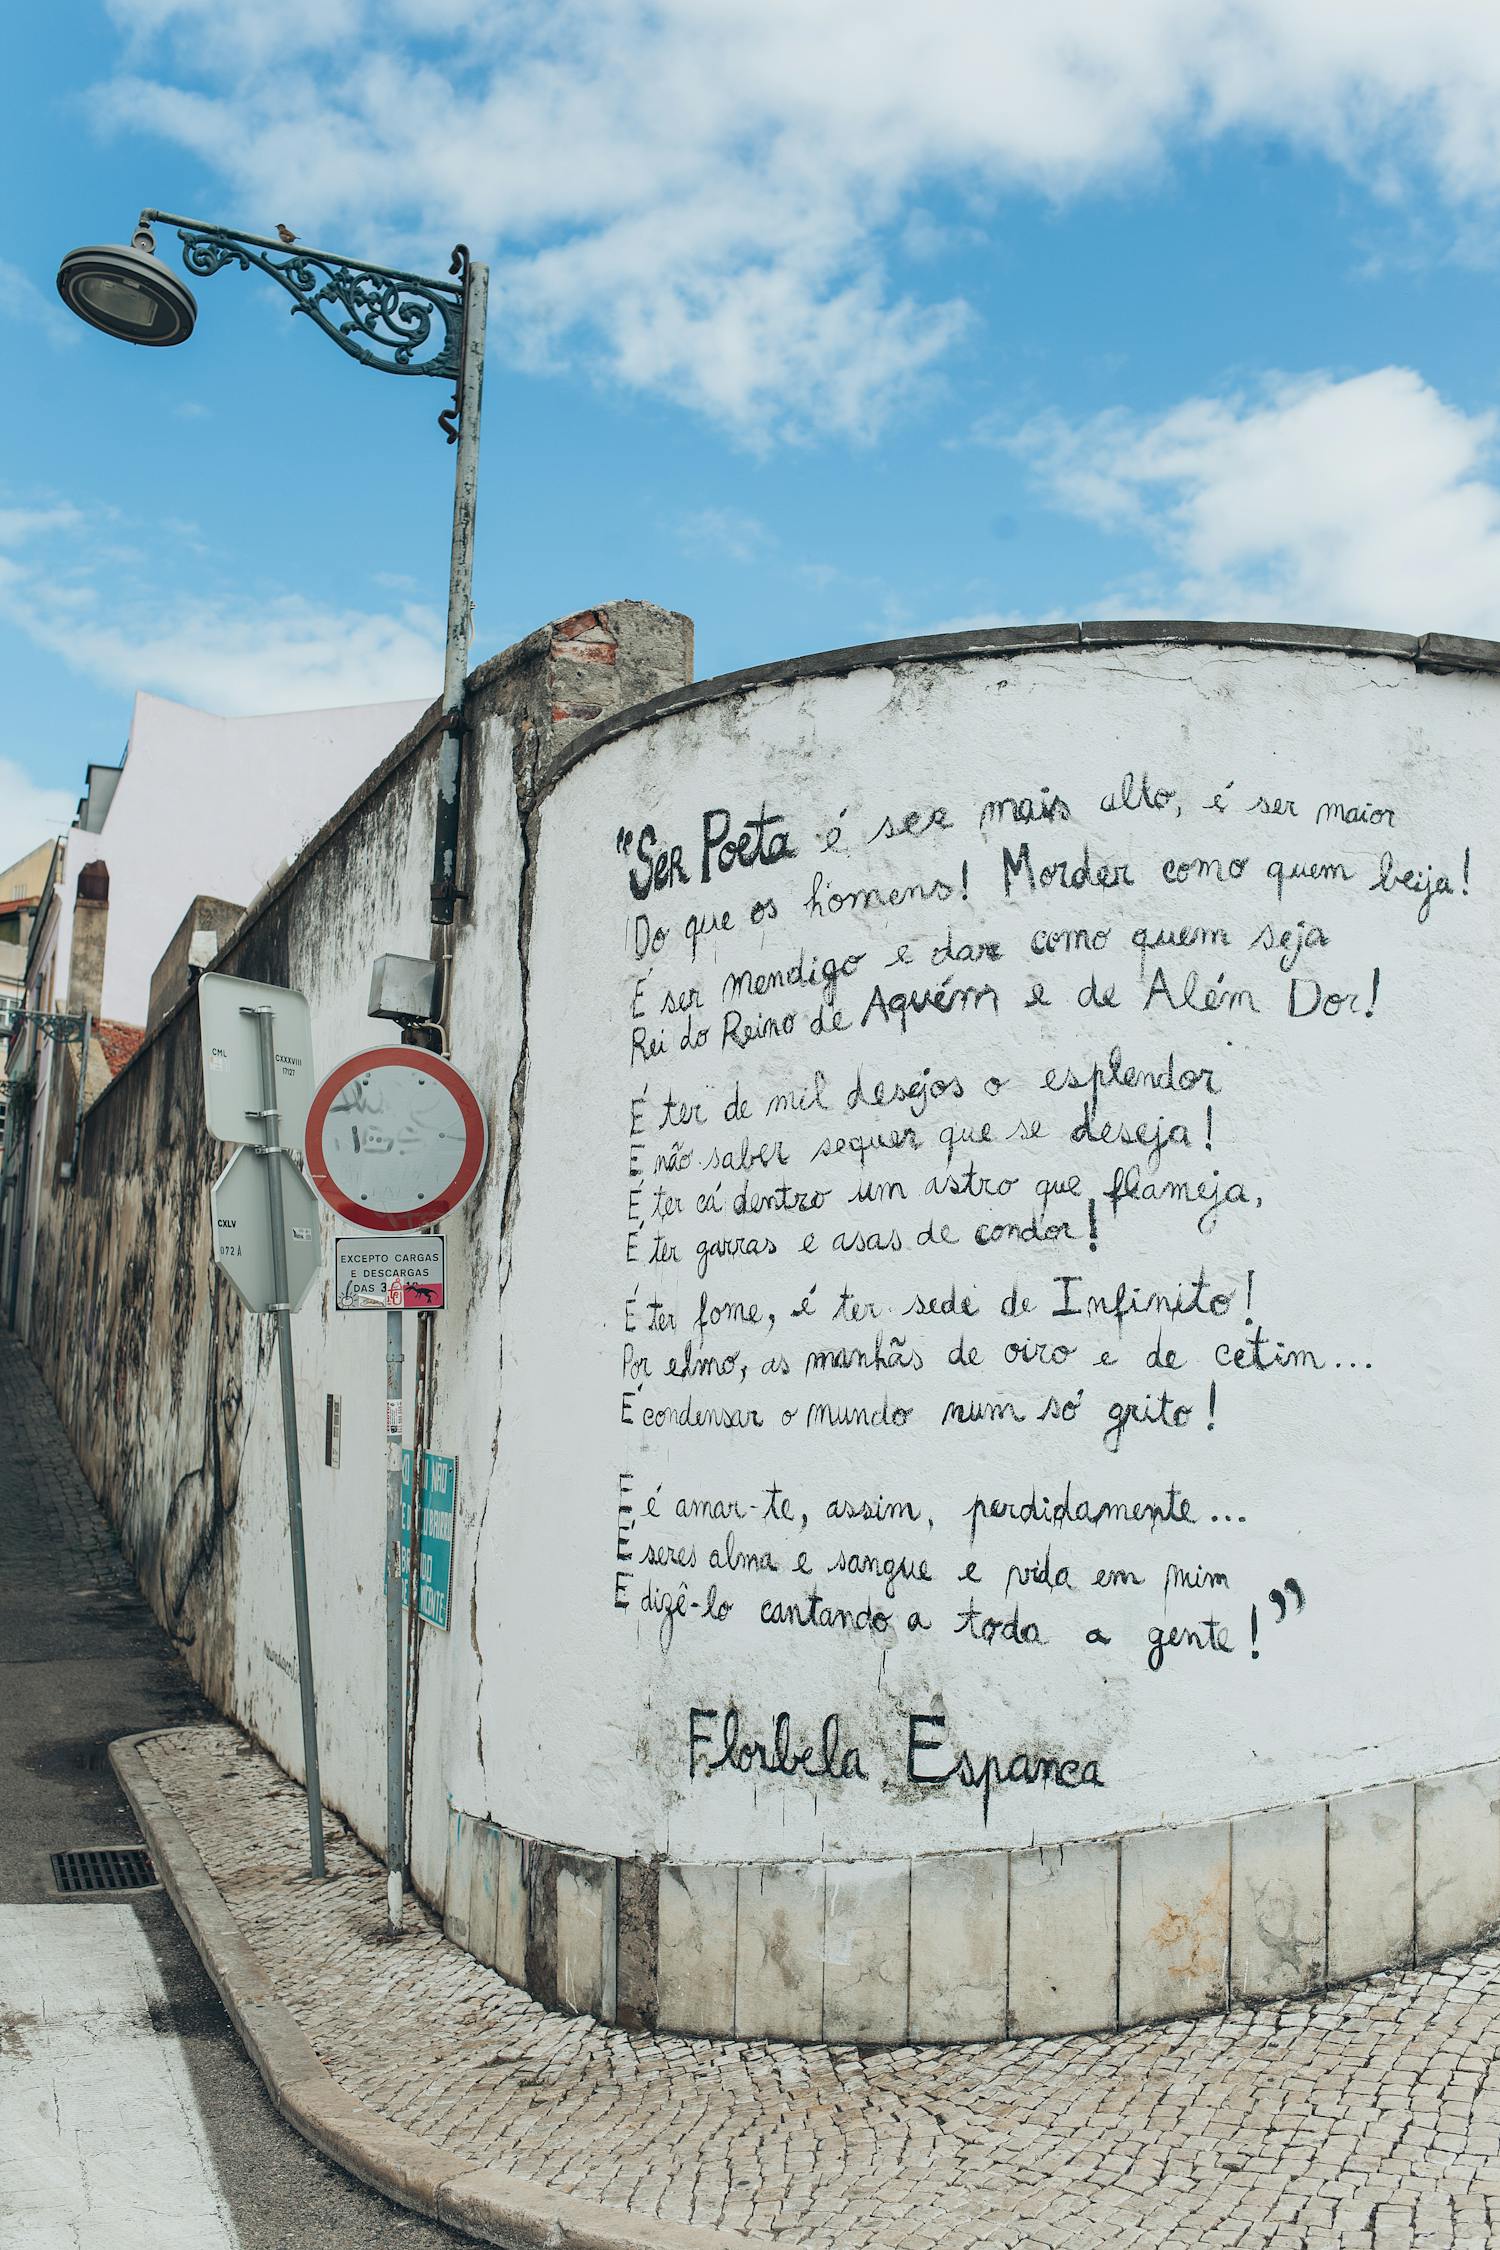 "Ser Poeta é ser mais alto, é ser maior
Do que os homens! Morder como quem beija!
É ser mendigo e dar como quem seja
Rei do Reino de Aquém e de Além Dor!
É ter de mil desejos o esplendor
E não saber sequer que se deseja!
É ter cá dentro um astro que flameja,
É ter garras e asas de condor!
É ter fome, é ter sede de Infinito!
Por elmo, as manhãs de oiro e de cetim...
É condensar o mundo num só grito!
E é amar-te, assim, perdidamente...
É seres alma e sangue e vida em mim
E dizê-lo cantando a toda a gente!"
Florbela Espanca
CML
CXXXVIII
17127
CXLV
072A
EXCEPTO CARGAS
E DESCARGAS
DAS
NÃO